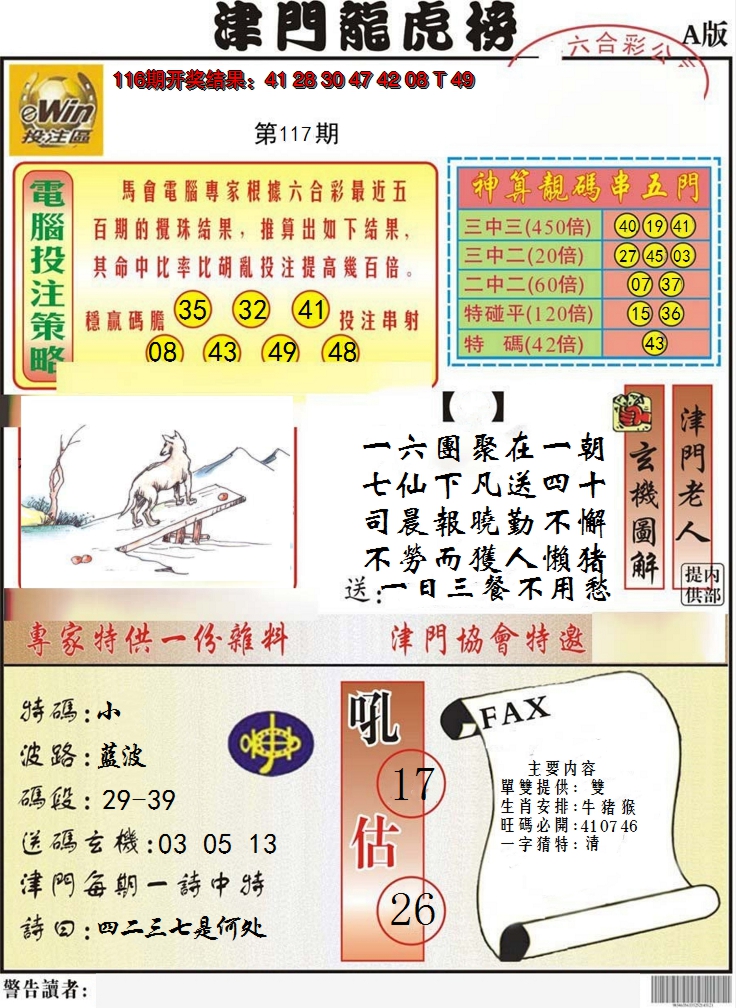 津門龍虎榜
A版
六合彩公
116期开奖结果：41 28 30 47 42 08 T 49
eWin
投注區
第117期
電腦投注策略
馬會電腦專家根據六合彩最近五
百期的攪珠结果，推算出如下结果，
其命中比率比胡亂投注提高幾百倍。
穩贏碼膽 35 32 41 投注串射
08 43 49 48
神算靚碼串五門
三中三(450倍) 40 19 41
三中二(20倍) 27 45 03
二中二(60倍) 07 37
特碰平(120倍) 15 36
特 碼(42倍) 43
【 】
一六團聚在一朝
七仙下凡送四十
司晨報曉勤不懈
不勞而獲人懶猪
送：一日三餐不用愁
玄機圖解
津門老人
内部提供
專家特供一份雜料
津門協會特邀
特碼：小
波路：藍波
碼段：29-39
送碼玄機：03 05 13
津門每期一詩中特
詩曰：四二三七是何处
吼
17
估
26
FAX
主要内容
單雙提供：雙
生肖安排：牛猪猴
旺碼必開：410746
一字猜特：清
警告讀者：